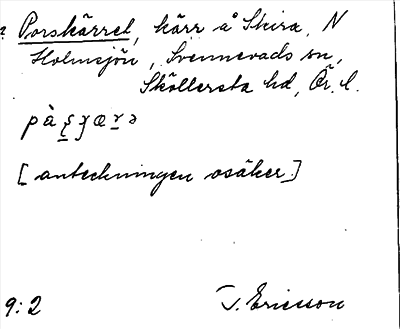 Porskärret, kärr å Skira, N
Holmsjön, Svennevads sn,
Sköllersta hd, Ör. l.
[anteckningen osäker]
9:2 T. Ericsson